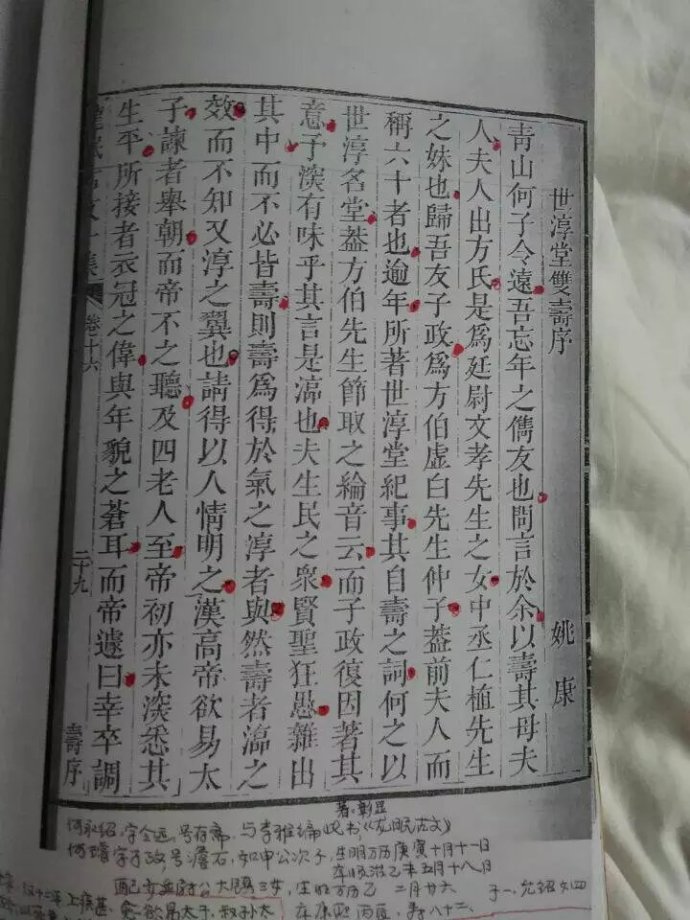 世淳堂雙壽序
姚康
青山何子令遠吾忘年之儁友也間言於余以壽其母夫
人夫人出方氏是爲廷尉文孝先生之女中丞仁植先生
之妹也歸吾友子政爲方伯虛白先生仲子葢前夫人而
稱六十者也逾年所著世淳堂紀事其自壽之詞何之以
世淳名堂葢方伯先生節取之綸音云而子政復因著其
意予深有味乎其言是漓也夫生民之衆賢聖狂愚雜出
其中而不必皆壽則壽爲得於氣之淳者與然壽者漓之
效而不知又淳之翼也請得以人情明之漢高帝欲易太
子諫者舉朝而帝不之聽及四老人至帝初亦未深悉其
生平所接者衣冠之偉與年貌之蒼耳而帝遽曰幸卒調
龍眠古文一集 卷二十六 二十九 壽序
著，彰显
何永绍，字令远，号存斋，与李雅编《龙眠古文》
字子政，号澹石，如申公次子，生明万历庚寅十月十一日
卒顺治乙未五月十八日
二月廿六
卒康熙丙辰，寿八十二